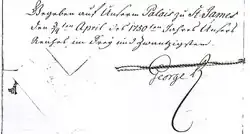 Gegeben auf Unserm Palais zu St James
den 7/4ten April des 1750ten Jahres Unsers
Reichs im Drey und zwanzigsten.
George R